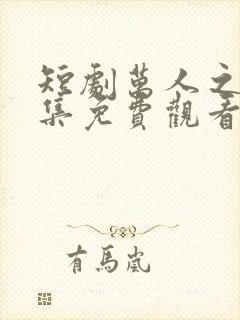 短劇萬人之
集免費觀看
有馬嵐